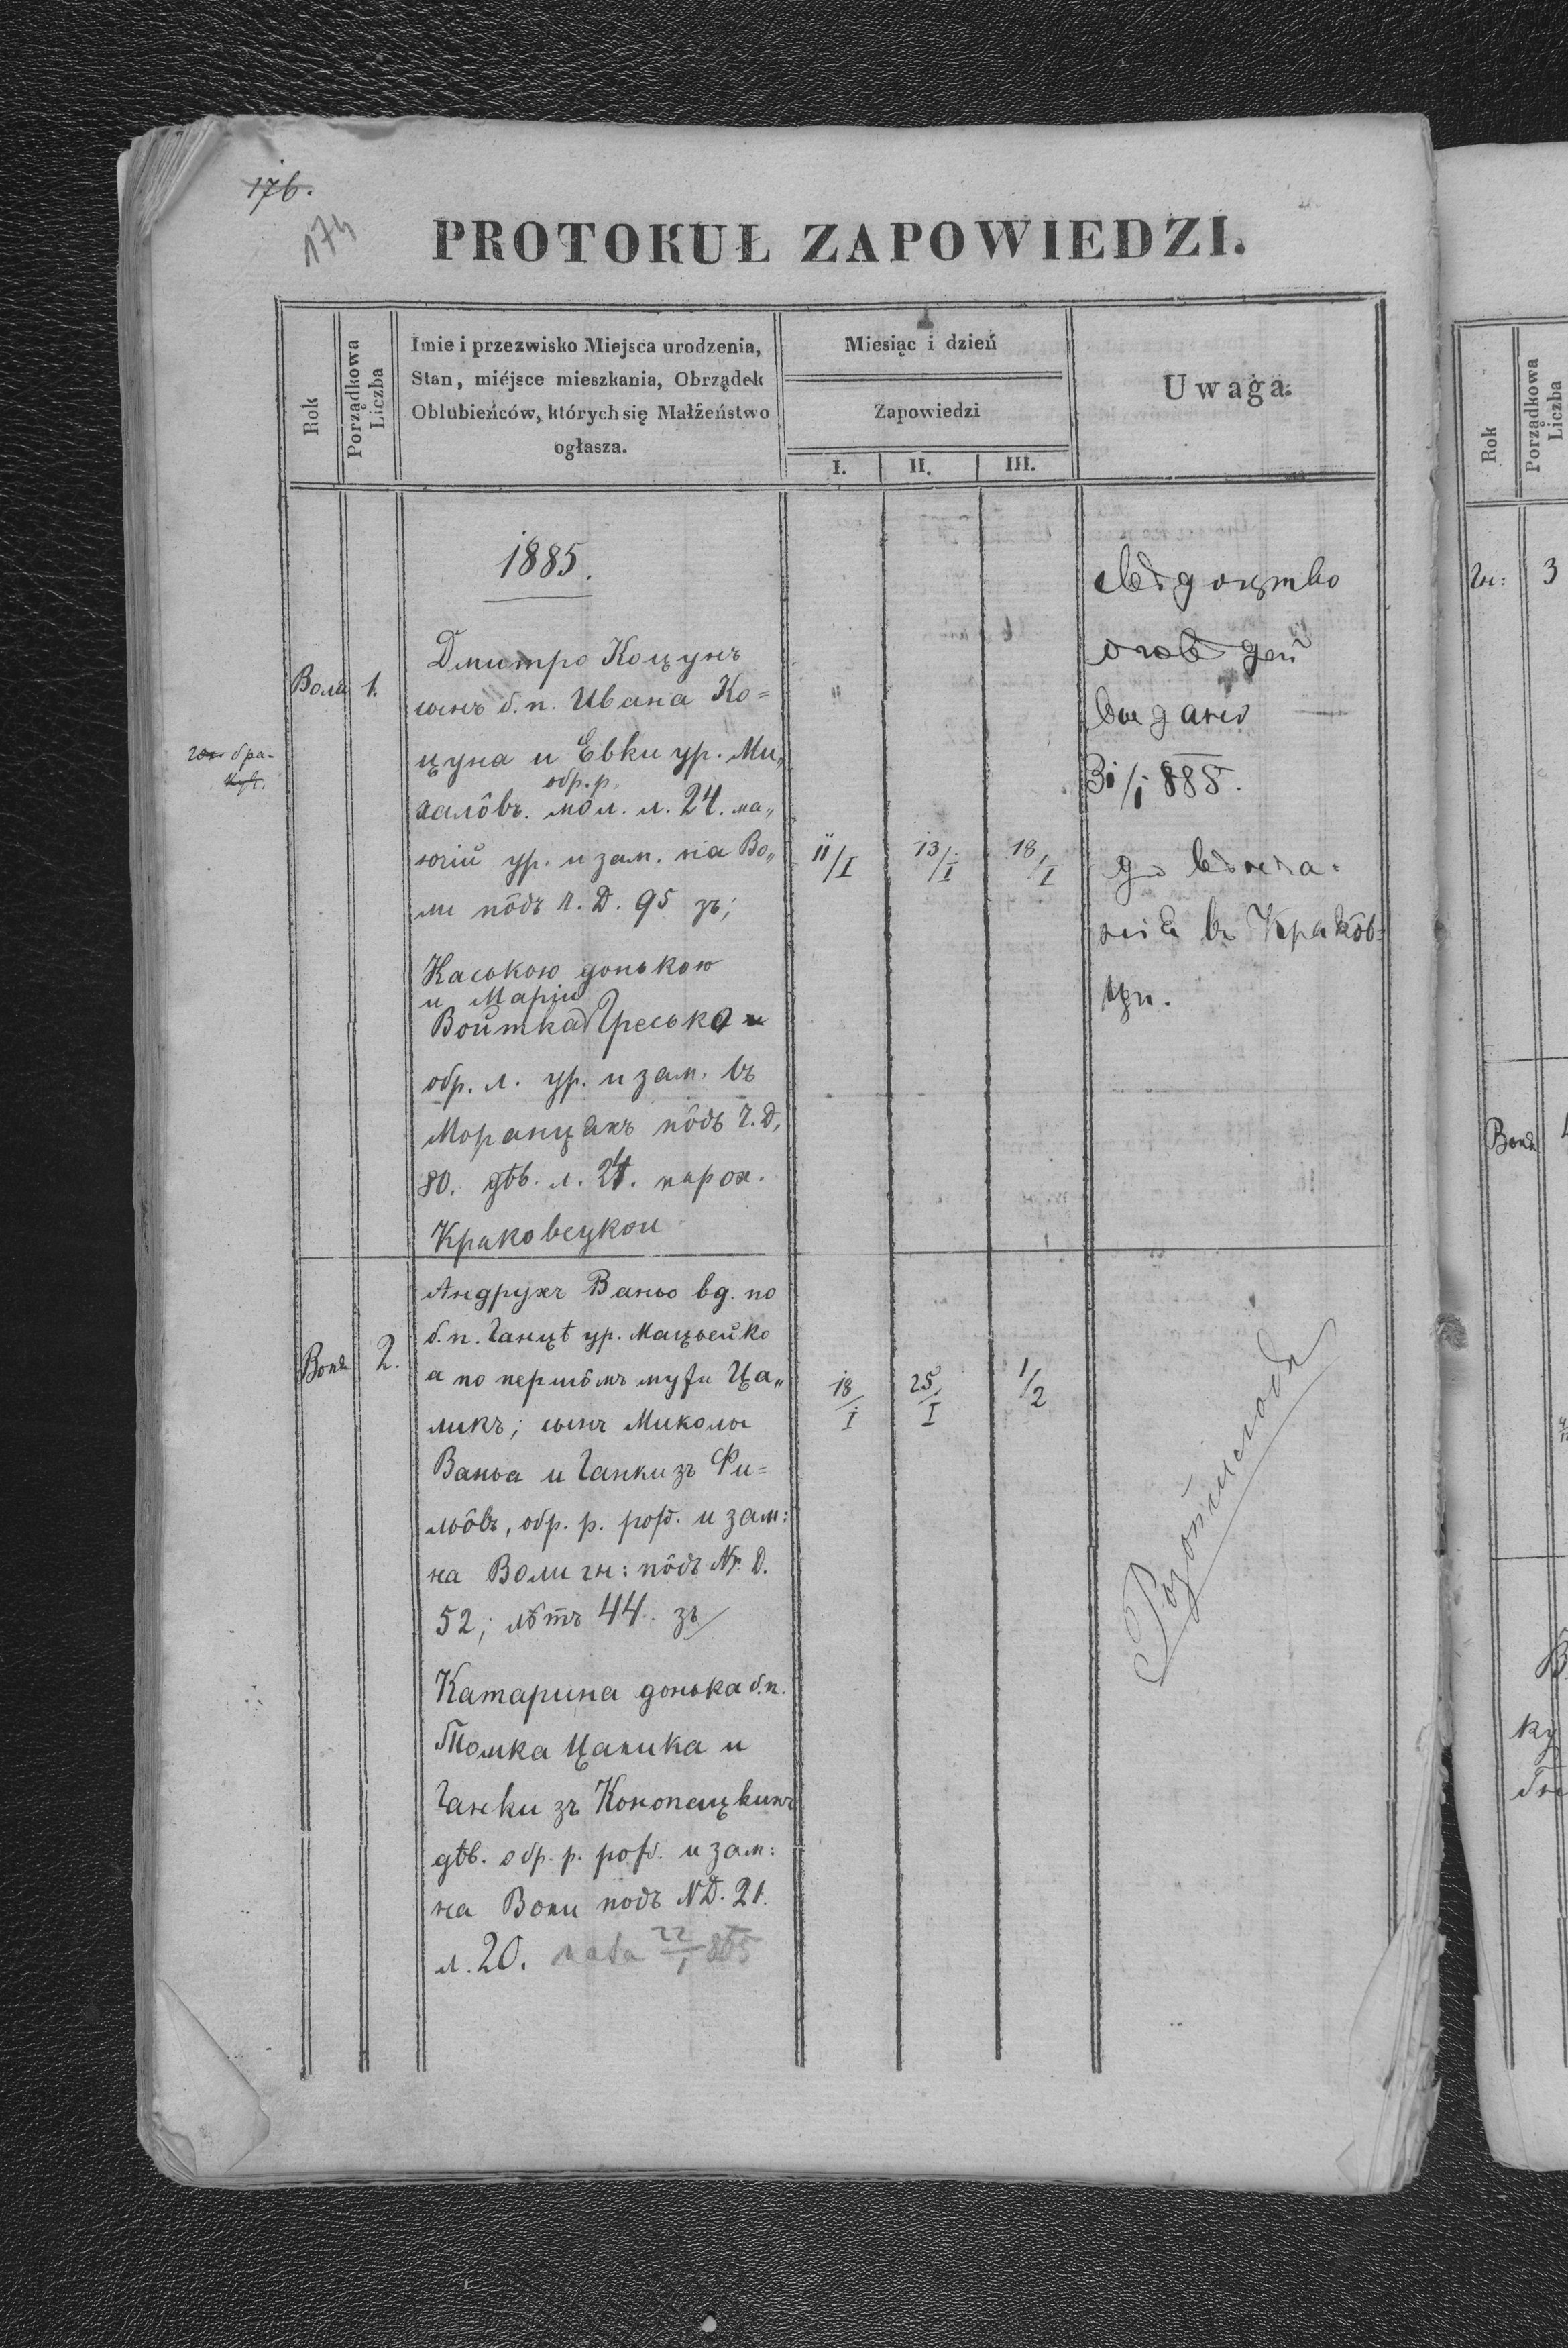 176.
174
PROTOKUŁ ZAPOWIEDZI.
Rok
Porządkowa Liczba
Imie i przezwisko Miejsca urodzenia,
Stan, miéjsce mieszkania, Obrządek
Oblubieńców, których się Małżeństwo
ogłasza.
Miesiąc i dzień
Zapowiedzi
I. II. III.
Uwaga.
1885.
Воли 1.
Дмитро Коцунъ
сынъ б.п. Ивана Ко=
цуна и Евки ур. Ми„
обр. р.
халôвъ. мол. л. 24. ма„
ючій ур. и зам. на Во„
ли пôдъ Ч. Д. 95 зъ;
Каською донькою
и Маріи
Войтка Греська
обр. л. ур. и зам. въ
Моранцѣхъ пôдъ Ч. Д.
80. дѣв. л. 24. парох.
Краковецкои
11/I 13/I 18/I
Свѣдоцтво
дей
выдано
31/1 885.
до вѣнча=
нія въ Кракôв=
ци.
Воля 2.
Андрухъ Ваньо вд. по
б.п. Ганцѣ ур. Мацьейко
а по першôмъ мужи Ца„
ликъ; сынъ Миколы
Ваньа и Ганки зъ Фи=
льôвъ, обр. р. рож. и зам:
на Воли гн: пôдъ Nr. Д.
52; лѣтъ 44. зъ
Катарина донька б.п.
Томка Цалика и
Ганки зъ
дѣв. обр. р. рож. и зам:
на Воли подъ N Д. 21.
л. 20. 22/1 885
18/I 25/I 1/2
Rok
Porządkowa Liczba
Гн: 3
Воля